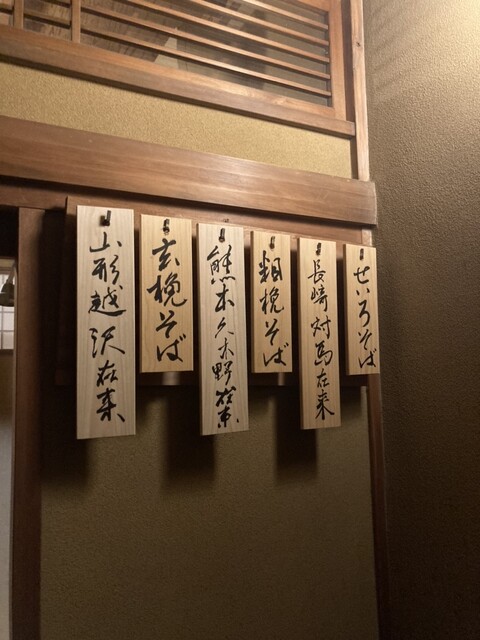 せいろそば
長崎対馬在来
粗挽そば
熊本久木野
玄挽そば
山形越沢在来